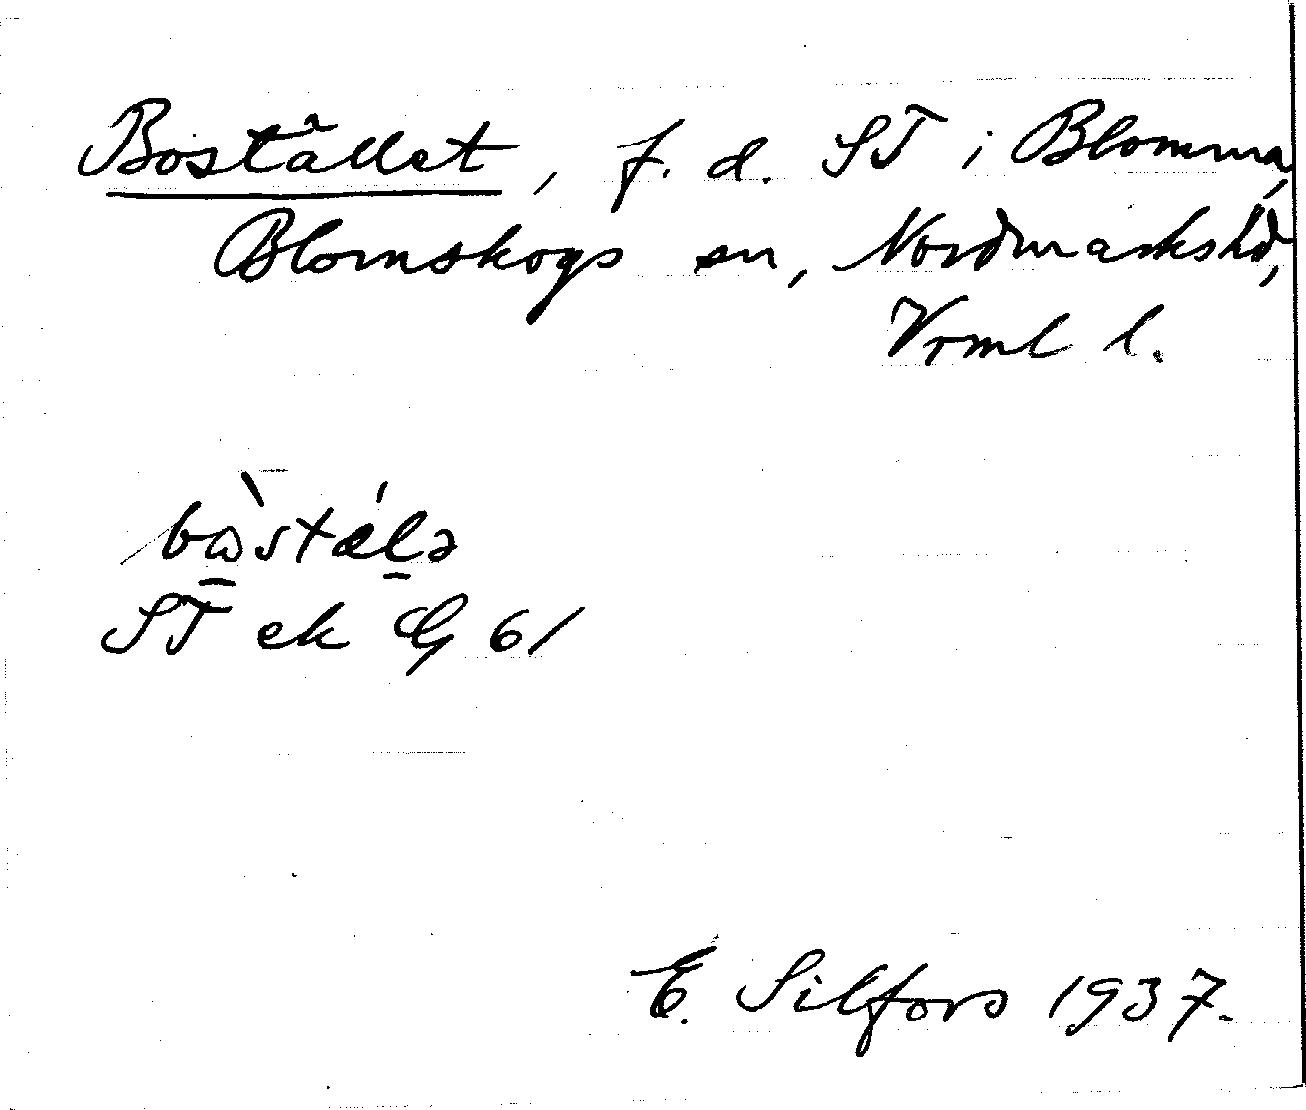 Bostället, f. d. ST i Blomma,
Blomskogs sn, Nordmarks hd,
Vrml l.
bὼstǽl̠ə
ST ek G 61
E. Silfors 1937.